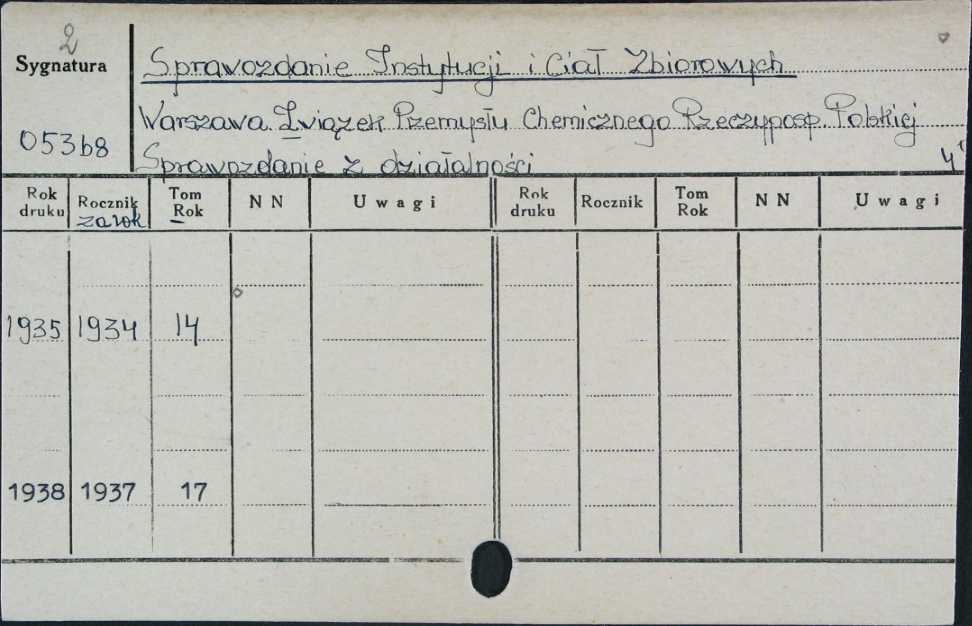 2
Sygnatura
Sprawozdanie Instytucji i Ciał Zbiorowych
Warszawa. Związek Przemysłu Chemicznego Rzeczyposp. Polskiej
053b8
Sprawozdanie z działalności 4°
Rok druku Rocznik za rok Tom Rok NN Uwagi Rok druku Rocznik Tom Rok NN Uwagi
1935 1934 14
1938 1937 17